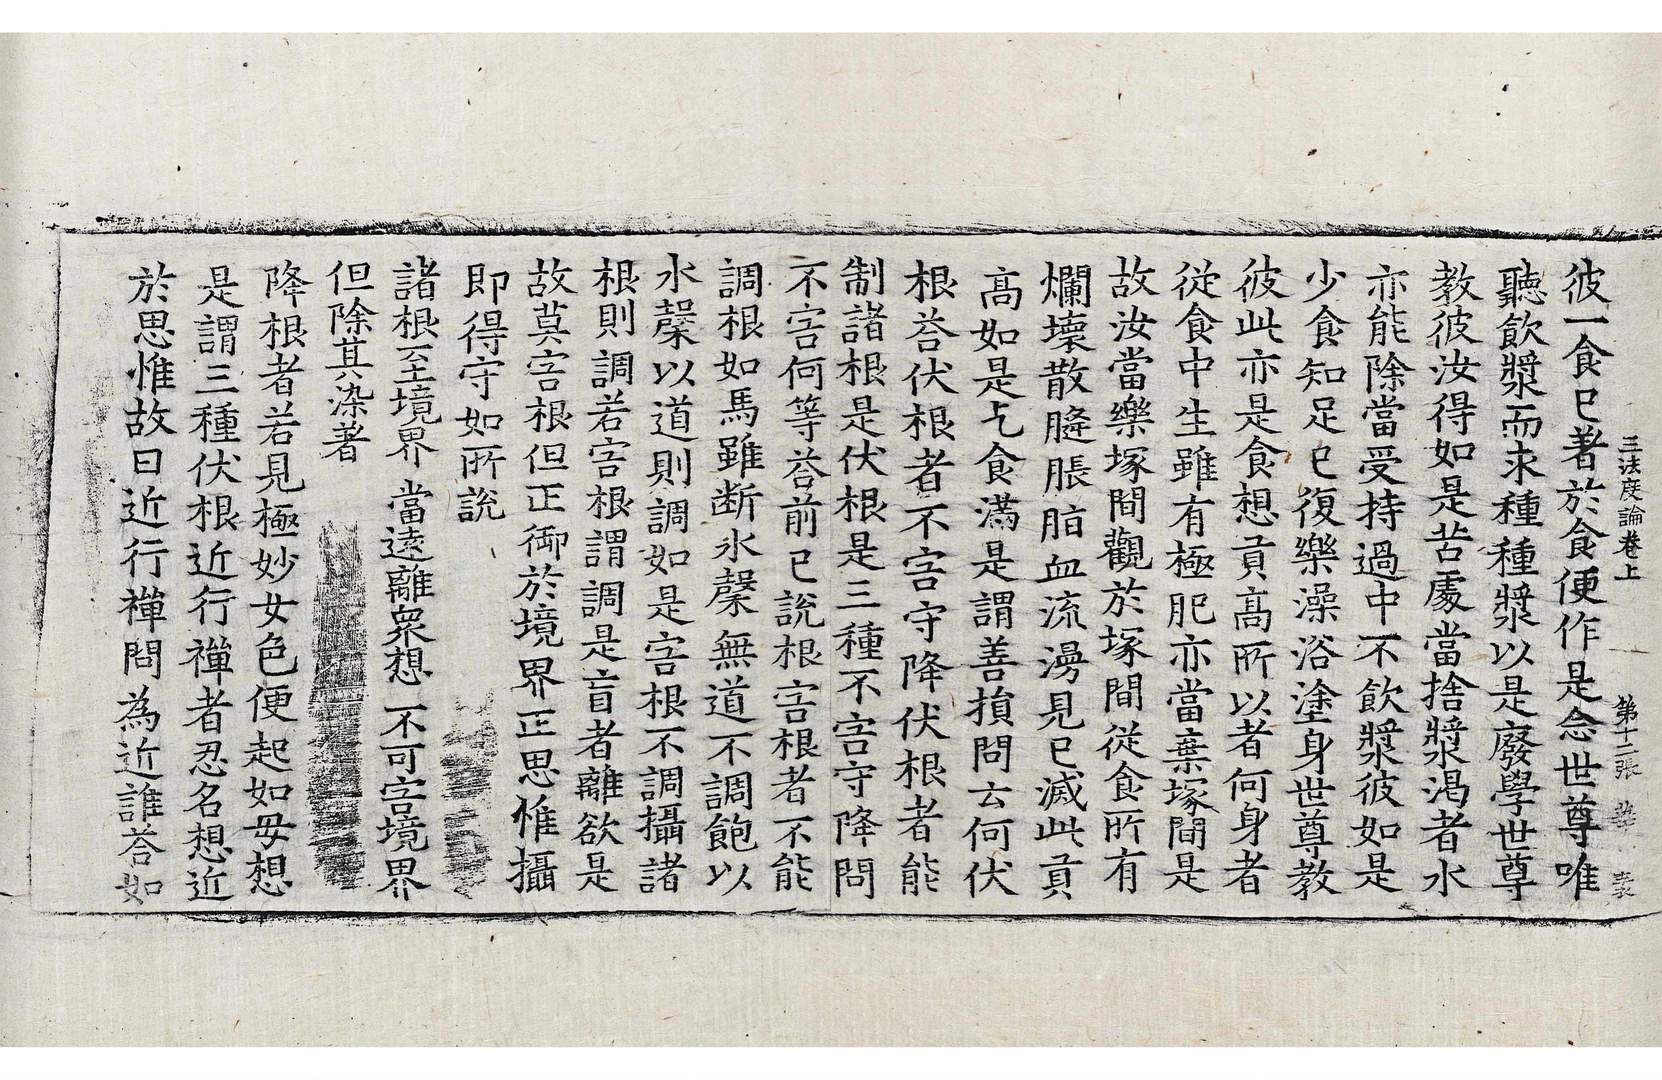 三法度論卷上 第十二張 華
彼一食已著於食便作是念世尊唯
聽飲漿而求種種漿以是廢學世尊
教彼汝得如是苦處當捨漿渴者水
亦能除當受持過中不飲漿彼如是
少食知足已復樂澡浴塗身世尊教
彼此亦是食想貢高所以者何身者
從食中生雖有極肥亦當棄塚間是
故汝當樂塚間觀於塚間從食所有
爛壞散膖脹脂血流漫見已滅此貢
高如是乞食滿是謂善損問云何伏
根荅伏根者不害守降伏根者能
制諸根是伏根是三種不害守降問
不害何等荅前已說根害根者不能
調根如馬雖断水䅽無道不調飽以
水䅽以道則調如是害根不調攝諸
根則調若害根謂調是盲者離欲是
故莫害根但正御於境界正思惟攝
即得守如所說
諸根至境界 當遠離衆想 不可害境界
但除其染著
降根者若見極妙女色便起如母想
是謂三種伏根近行禪者忍名想近
於思惟故曰近行禪問為近誰荅如